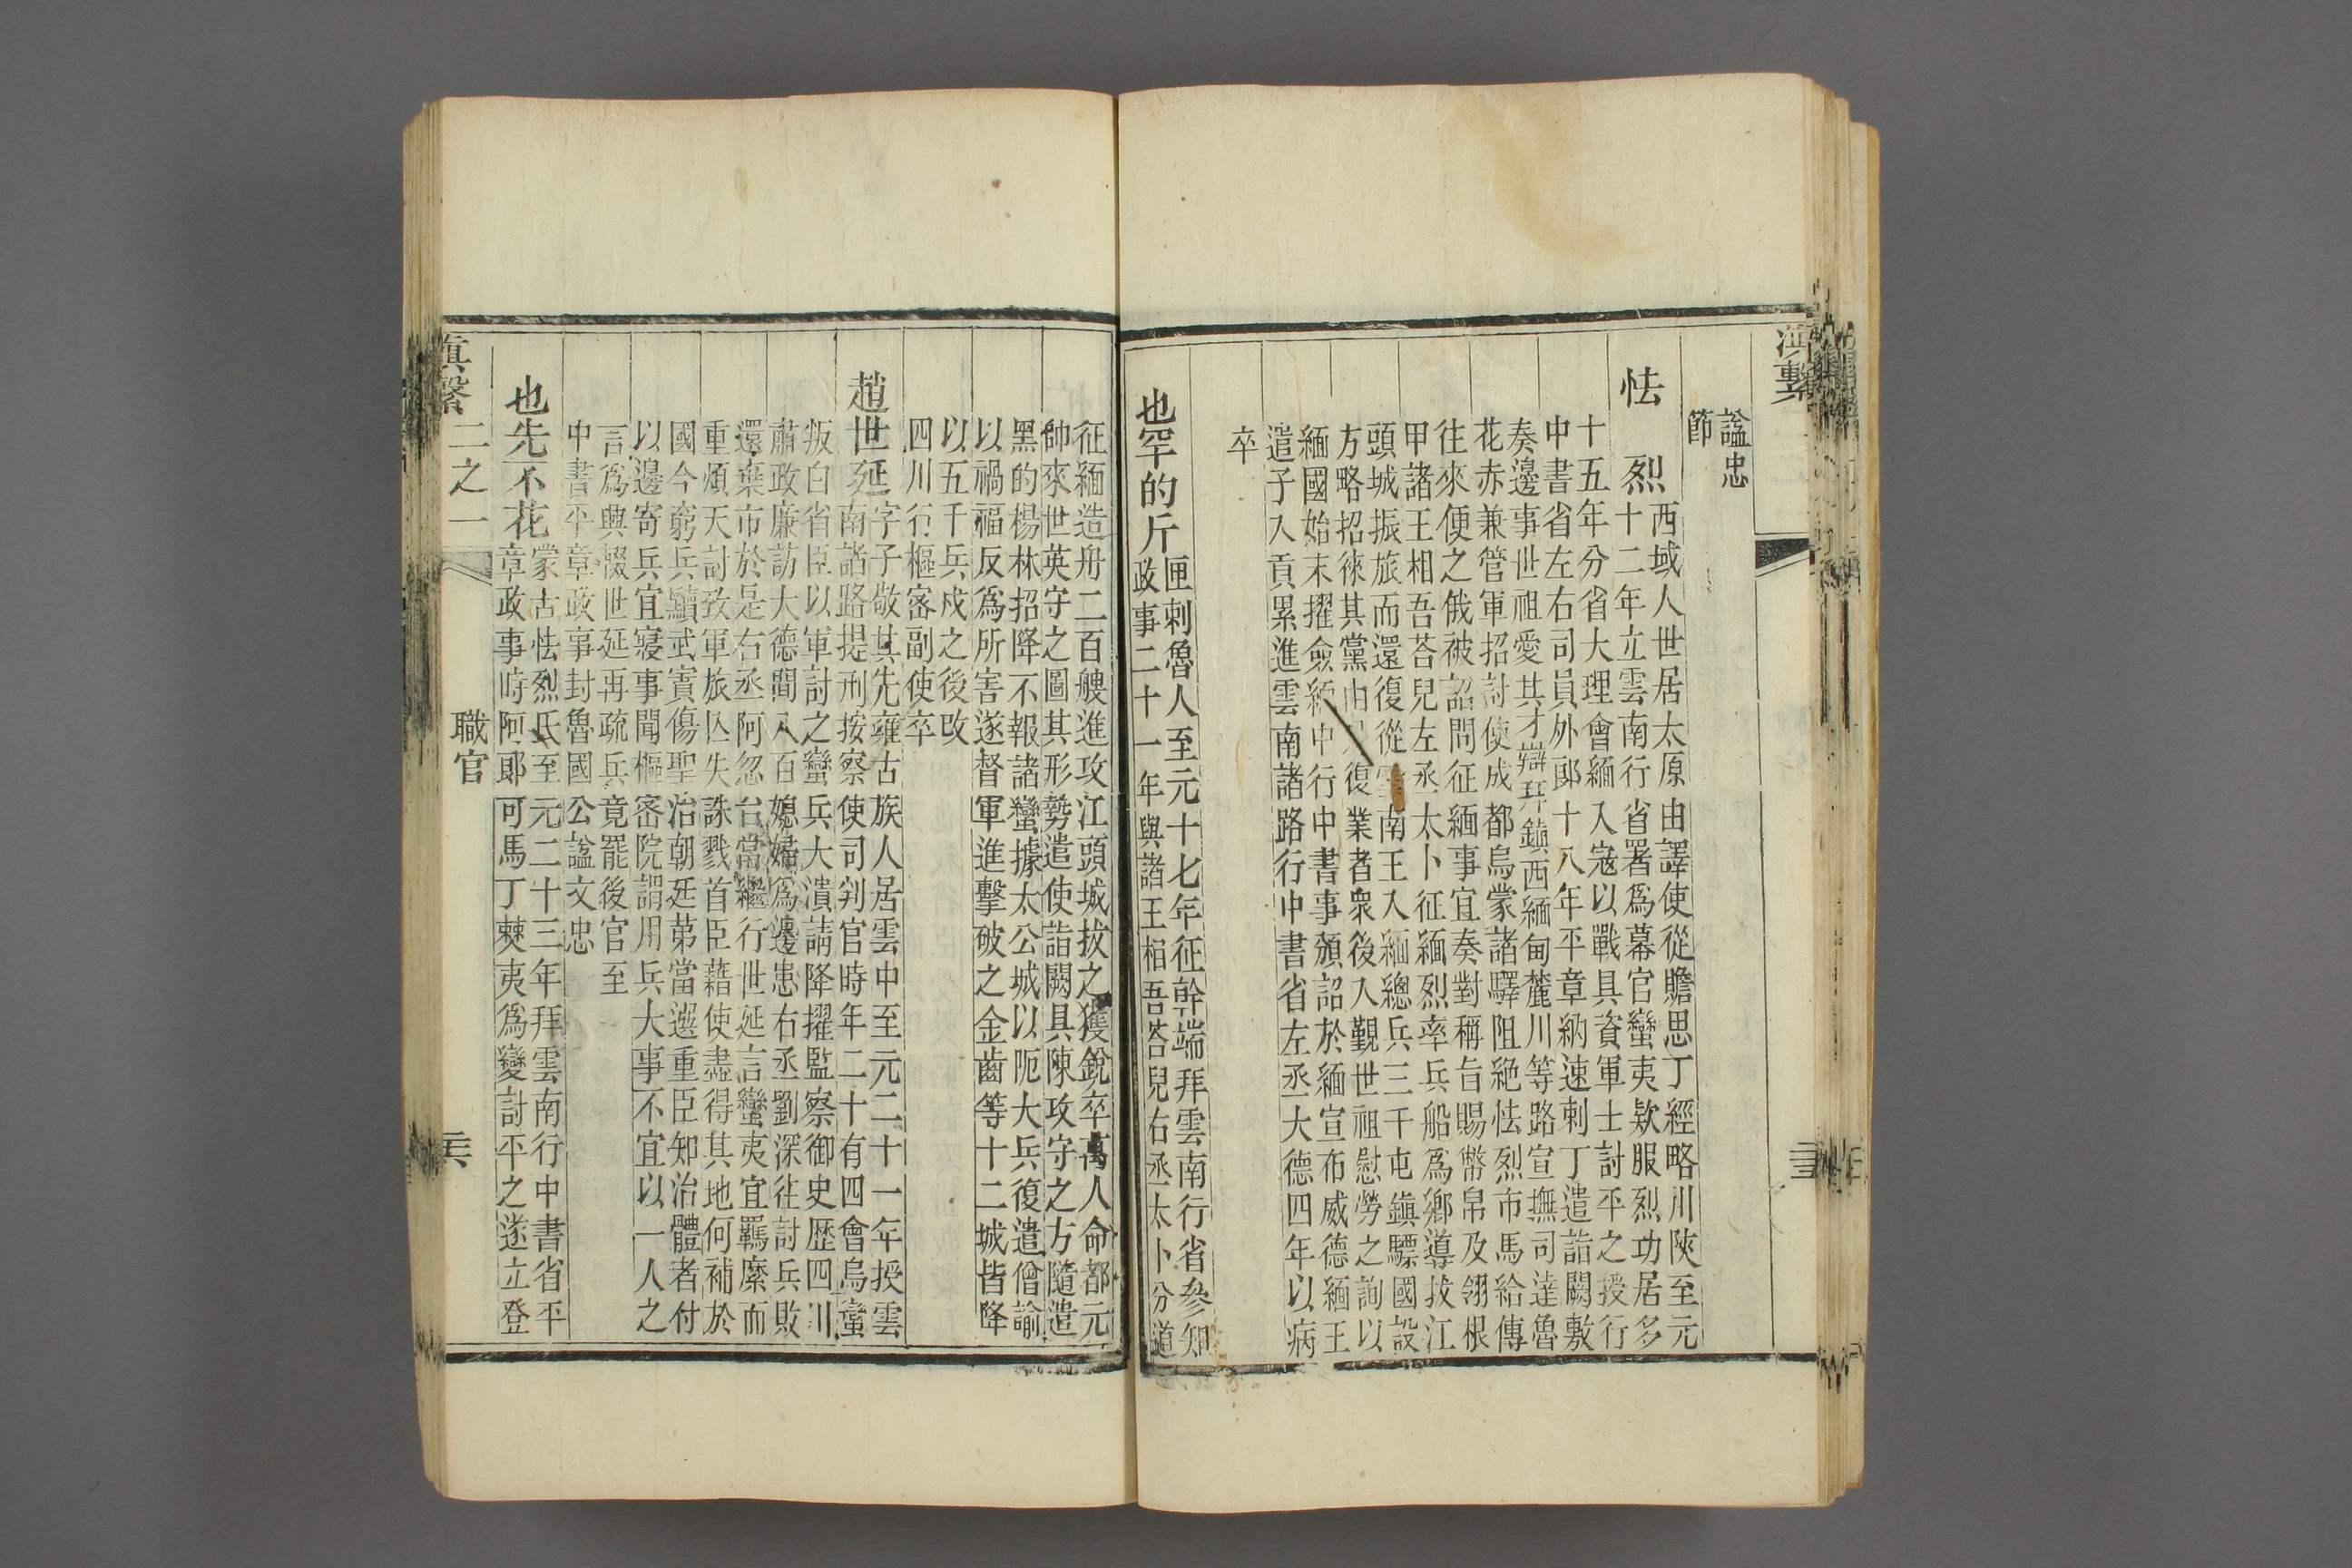 滇繫
諡忠
節
怯烈
西域人世居太原由譯使從贍思丁經略川陝至元
十二年立雲南行省署為幕官蠻夷欵服烈功居多
十五年分省大理會緬人寇以戰具資軍士討平之授行
中書省左右司員外郎十八年平章納速剌丁遣詣闕敷
奏邊事世祖愛其才辯拜鎮西緬甸麓川等路宣撫司達魯
花赤兼管軍招討使成都烏蒙諸驛阻絶怯烈市馬給傳
往來便之俄被詔問征緬事宜奏對稱旨賜幣帛及翎根
甲諸王相吾荅兒左丞太卜征緬烈率兵船為鄉導拔江
頭城振旅而還復從雲南王入緬總兵三千屯鎮驃國設
方略招徠其黨由是復業者衆後入覲世祖慰勞之詢以
緬國始末擢僉緬中行中書事頒詔於緬宣布威德緬王
遣子入貢累進雲南諸路行中書省左丞大德四年以病
卒
也罕的斤
匣剌魯人至元十七年征斡端拜雲南行省參知
政事二十一年與諸王相吾荅兒右丞太卜分道
征緬造舟二百艘進攻江頭城拔之獲銳卒萬人命都元
帥來世英守之圖其形勢遣使詣闕具陳攻守之方隨遣
黑的楊林招降不報諸蠻據太公城以阨大兵復遣僧諭
以禍福反為所害遂督軍進擊破之金齒等十二城皆降
以五千兵戍之後改
四川行樞密副使卒
趙世延
字子敬其先雍古族人居雲中至元二十一年授雲
南諸路提刑按察使司判官時年二十有四會烏蠻
叛白省臣以軍討之蠻兵大潰請降擢監察御史歴四川
肅政廉訪大德間八百媳婦為邊患右丞劉深往討兵敗
還棄市於是右丞阿忽台當繼行世延言蠻夷宜羈縻而
重煩天討致軍旅亾失誅戮首臣藉使盡得其地何補於
國今窮兵黷武實傷聖治朝廷第當選重臣知治體者付
以邊寄兵宜寢事聞樞密院謂用兵大事不宜以一人之
言為興輟世延再疏兵竟罷後官至
中書平章政事封魯國公諡文忠
也先不花
蒙古怯烈氏至元二十三年拜雲南行中書省平
章政事時阿郎可馬丁僰夷為變討平之遂立登
滇繫
二之一
職官